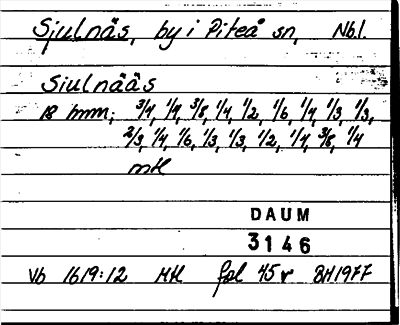 Sjulnäs, by i Piteå sn, Nbl.
Siulnääs
18 hmm; 3/4, 1/4, 3/8, 1/4, 1/2, 1/6, 1/4, 1/3, 1/3,
2/3, 1/4, 1/6, 1/3, 1/3, 1/2, 1/4, 3/8, 1/4
mtl
DAUM
3146
Vb 1619:12 Mtl fol 45 v BH1977